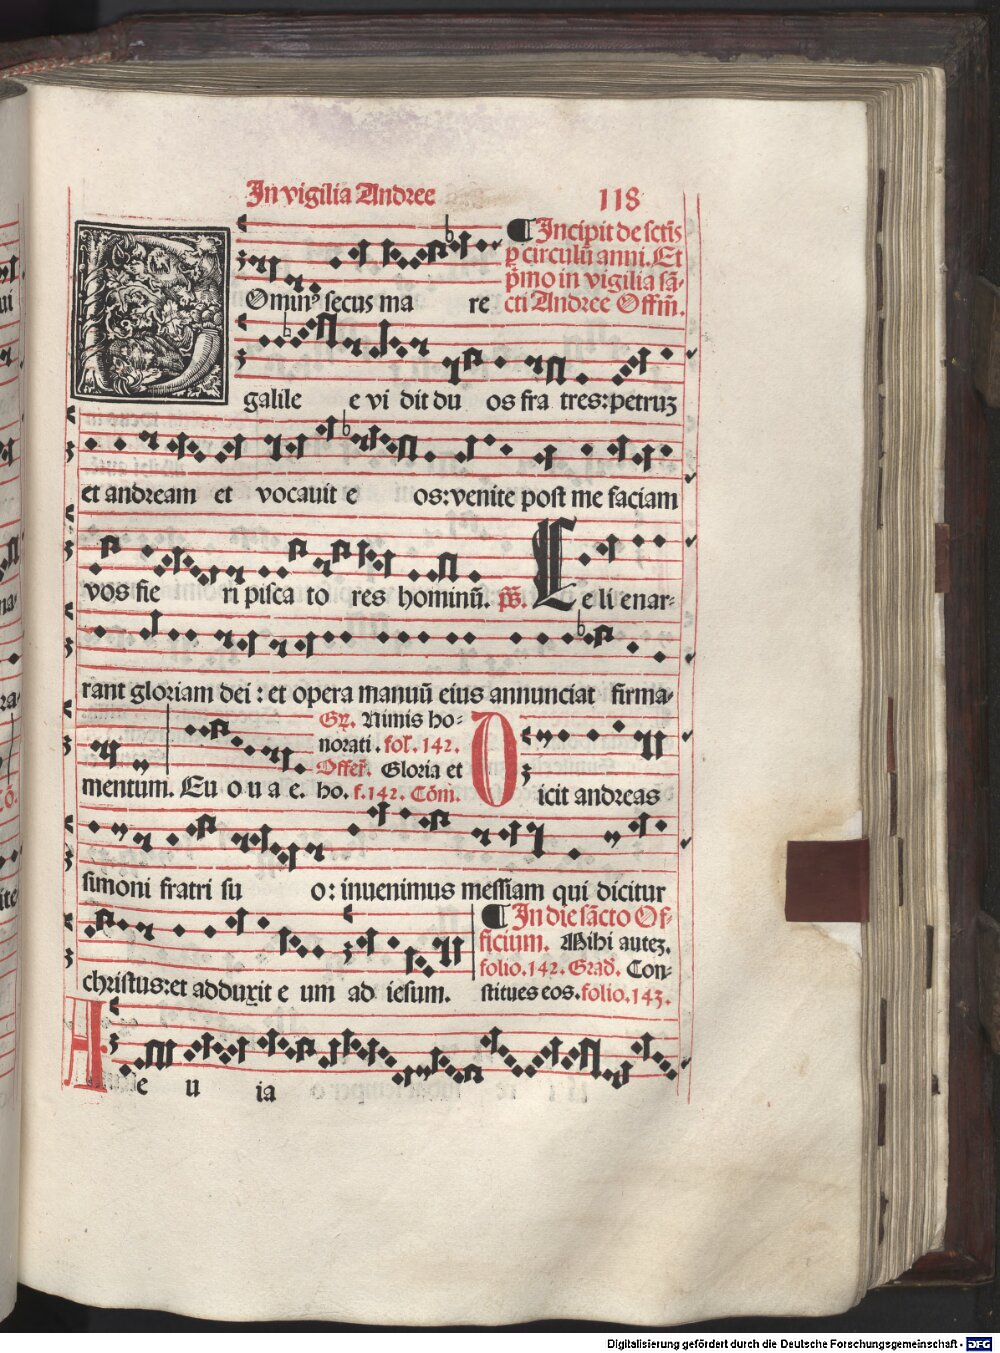 In vigilia Andree 118
¶ Incipit de sctis
ꝑ circulū anni. Et
p̄mo in vigilia sā-
cti Andree Offm̄.
DOminꝰ secus ma re
galile e vi dit du os fra tres: petruʒ
et andream et vocauit e os: venite post me faciam
vos fie ri pisca to res hominū. ps̄. Ce li enar-
rant gloriam dei : et opera manuū eius annunciat firma-
mentum. Eu o u a e.
Gr̄. Nimis ho-
norati . fol̄. 142.
Offer̄. Gloria et
ho. f. 142. Cōm.
Dicit andreas
simoni fratri su o : inuenimus messiam qui dicitur
christus: et adduxit e um ad iesum.
¶ In die sācto Of-
ficium. Mihi auteʒ.
folio. 142. Grad̄. Con-
stitues eos. folio. 143.
Ae u ia
ui
na-
ra-
cō.
ite
Digitalisierung gefördert durch die Deutsche Forschungsgemeinschaft - DFG